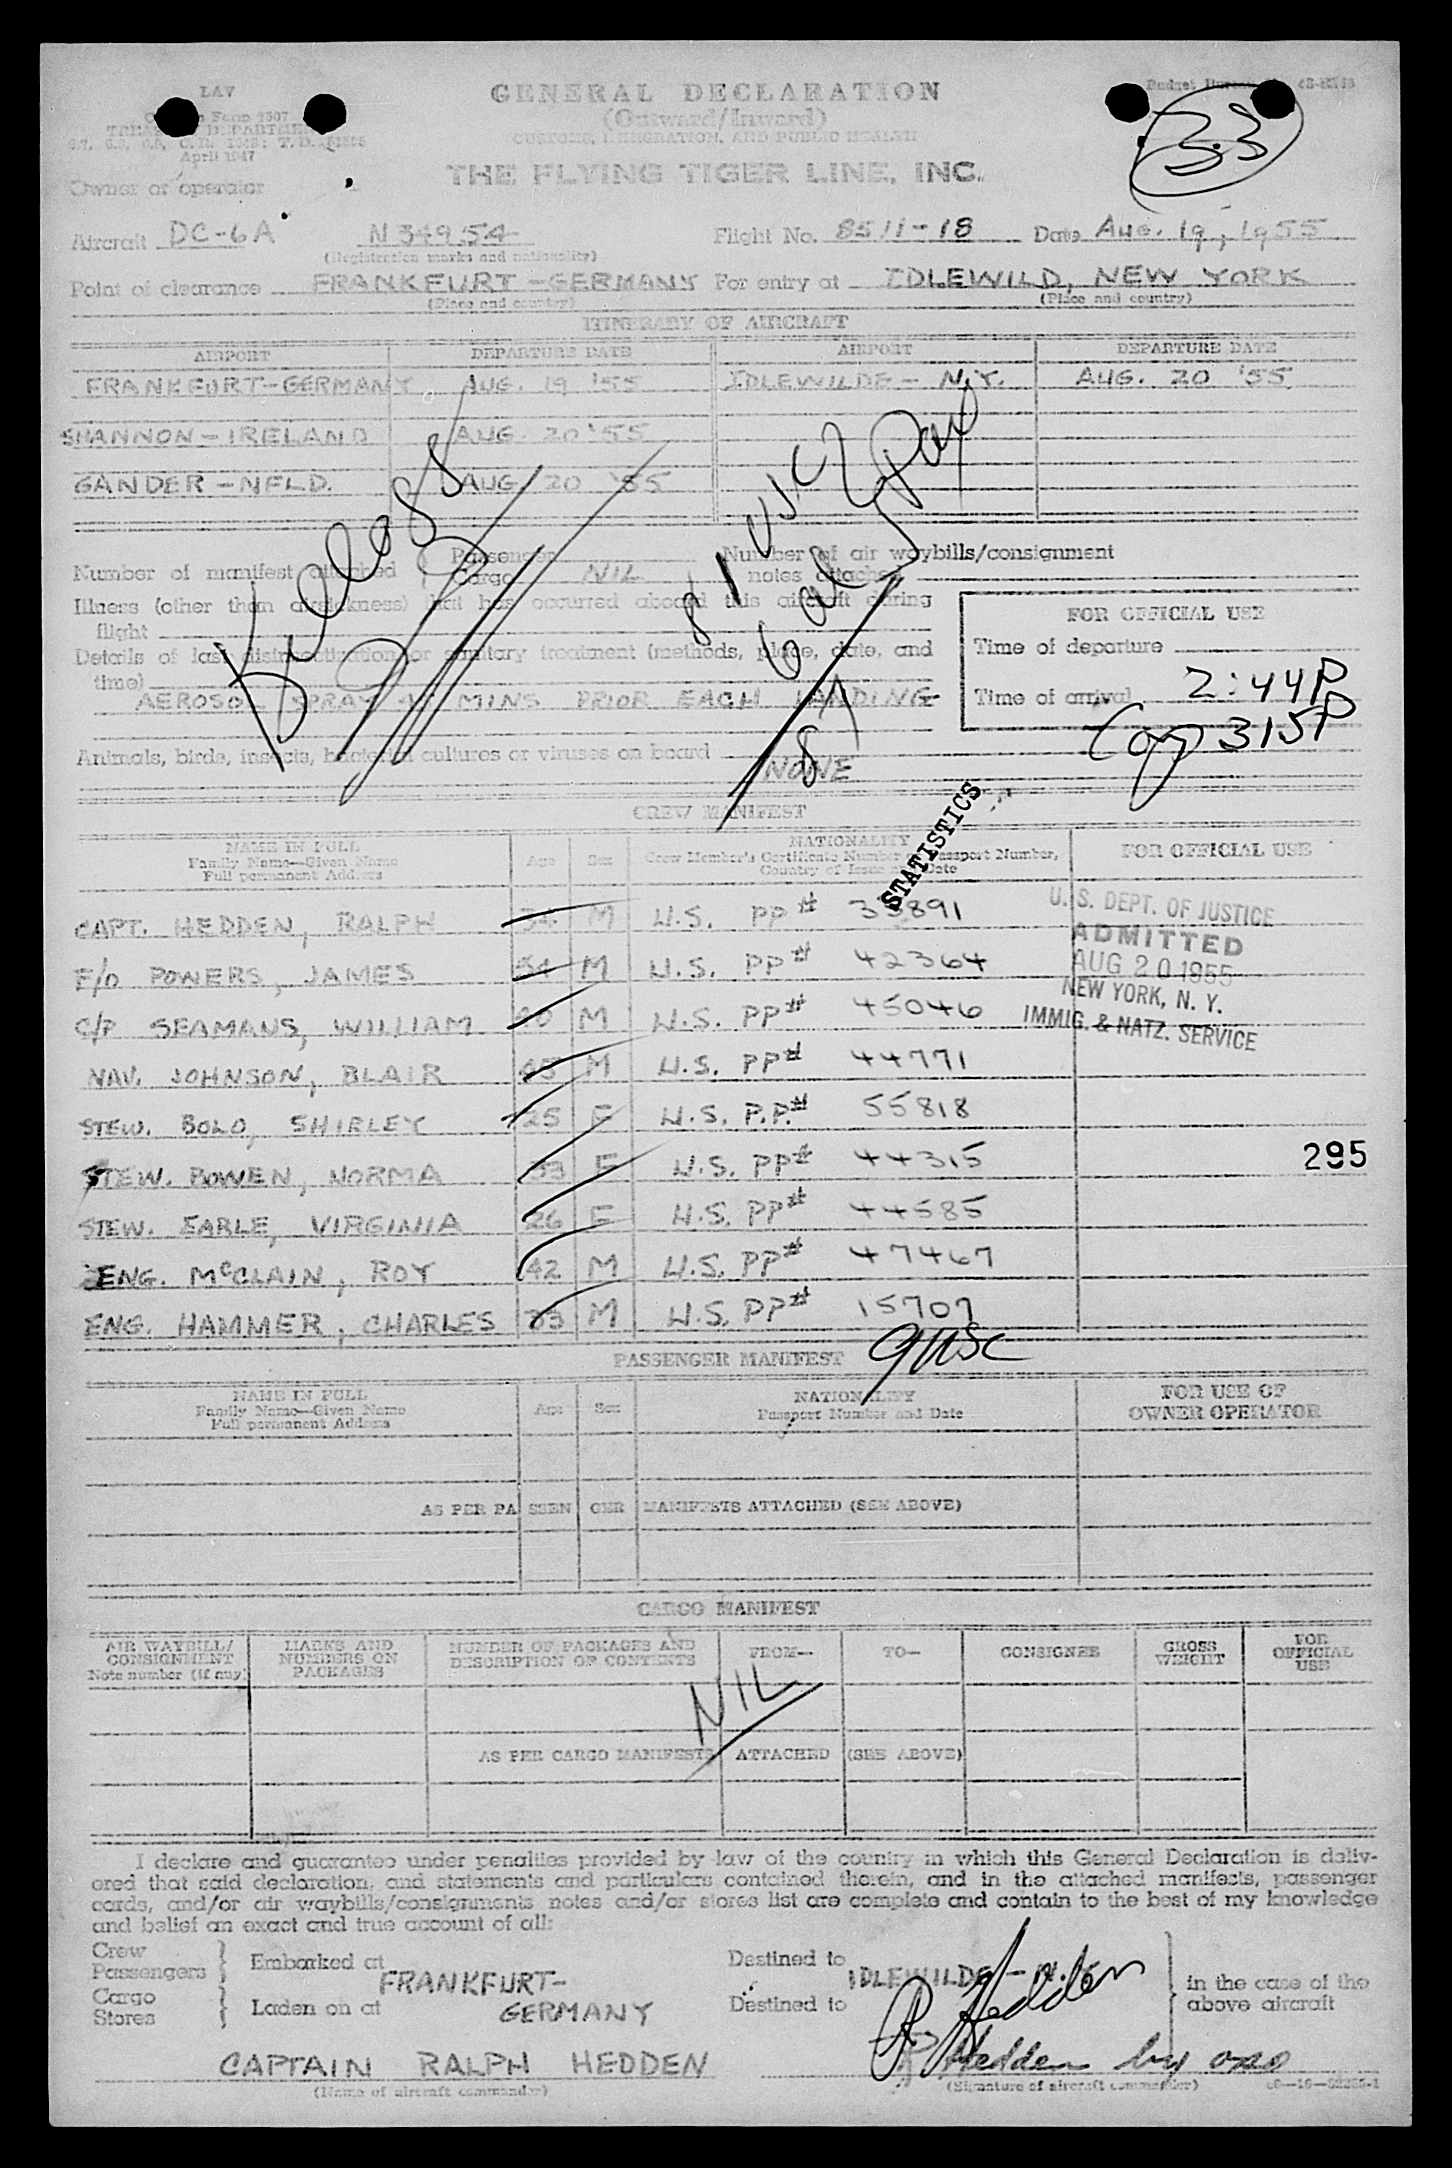 LAV
GENERAL DECLARATION
(Outward/Inward)
CUSTOMS, IMMIGRATION, AND PUBLIC HEALTH
April 1947
33
THE FLYING TIGER LINE, INC.
Owner or operator
Aircraft DC-6A N34954 Flight No. 8511-18 Date Aug. 19, 1955
(Registration marks and nationality)
Point of clearance FRANKFURT-GERMANY For entry at IDLEWILD, NEW YORK
(Place and country) (Place and country)
ITINERARY OF AIRCRAFT
AIRPORT DEPARTURE DATE AIRPORT DEPARTURE DATE
FRANKFURT-GERMANY AUG. 19 '55 IDLEWILDE - N.Y. AUG. 20 '55
SHANNON-IRELAND AUG. 20 '55
GANDER-NFLD. AUG. 20 '55
Number of manifest attached Passenger Cargo NIL Number of air waybills/consignment notes attached
Illness (other than airsickness) that has occurred aboard this aircraft during
flight
FOR OFFICIAL USE
Time of departure
Details of last disinsectization or sanitary treatment (methods, place, date, and
time)
AEROSOL SPRAY 45 MINS PRIOR EACH LANDING
Time of arrival 2:44P
315P
Animals, birds, insects, bacterial cultures or viruses on board NONE
81 USC
81
STATISTICS
CREW MANIFEST
NAME IN FULL
Family Name—Given Name
Full permanent Address
Age Sex
NATIONALITY
Crew Member's Certificate Number or Passport Number,
Country of Issue and Date
FOR OFFICIAL USE
CAPT. HEDDEN, RALPH 34 M U.S. PP# 33891
F/O POWERS, JAMES 34 M U.S. PP# 42364
C/P SEAMANS, WILLIAM 30 M U.S. PP# 45046
NAV. JOHNSON, BLAIR 45 M U.S. PP# 44771
STEW. BOLO, SHIRLEY 25 F U.S. P.P.# 55818
STEW. BOWEN, NORMA 33 F U.S. PP# 44315
STEW. EARLE, VIRGINIA 26 F U.S. PP# 44585
ENG. McCLAIN, ROY 42 M U.S. PP# 47467
ENG. HAMMER, CHARLES 33 M U.S. PP# 15707
U.S. DEPT. OF JUSTICE
ADMITTED
AUG 20 1955
NEW YORK, N. Y.
IMMIG. & NATZ. SERVICE
295
9 USC
PASSENGER MANIFEST
NAME IN FULL
Family Name—Given Name
Full permanent Address
Age Sex
NATIONALITY
Passport Number and Date
FOR USE OF
OWNER OPERATOR
AS PER PASSENGER MANIFESTS ATTACHED (SEE ABOVE)
CARGO MANIFEST
AIR WAYBILL/
CONSIGNMENT
Note number (if any)
MARKS AND
NUMBERS ON
PACKAGES
NUMBER OF PACKAGES AND
DESCRIPTION OF CONTENTS
FROM— TO— CONSIGNEE
GROSS
WEIGHT
FOR
OFFICIAL
USE
NIL
AS PER CARGO MANIFESTS ATTACHED (SEE ABOVE)
I declare and guarantee under penalties provided by law of the country in which this General Declaration is deliv-
ered that said declaration, and statements and particulars contained therein, and in the attached manifests, passenger
cards, and/or air waybills/consignments notes and/or stores list are complete and contain to the best of my knowledge
and belief an exact and true account of all:
Crew
Passengers } Embarked at FRANKFURT- Destined to IDLEWILDE - N.Y. in the case of the
Cargo
Stores } Laden on at GERMANY Destined to above aircraft
R Hedden
CAPTAIN RALPH HEDDEN R Hedden by
(Name of aircraft commander) (Signature of aircraft commander)